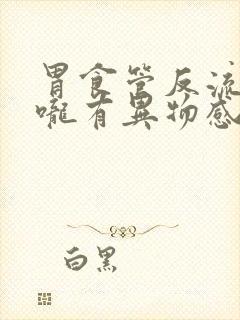 胃食管反流
嚨有異物感
白黑